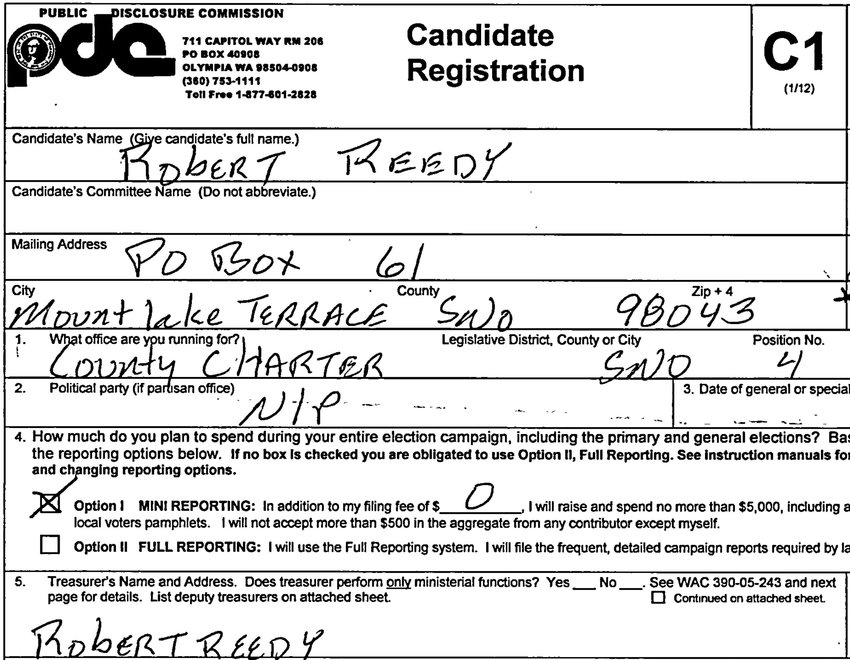 PUBLIC DISCLOSURE COMMISSION
pdc
711 CAPITOL WAY RM 206
PO BOX 40908
OLYMPIA WA 98504-0908
(360) 753-1111
Toll Free 1-877-601-2828
Candidate
Registration
C1
(1/12)
Candidate's Name (Give candidate's full name.)
ROBERT REEDY
Candidate's Committee Name (Do not abbreviate.)
Mailing Address
PO BOX 61
City County Zip + 4
Mountlake TERRACE SNO 98043
1. What office are you running for? Legislative District, County or City Position No.
COUNTY CHARTER SNO 4
2. Political party (if partisan office) 3. Date of general or special
N/P
4. How much do you plan to spend during your entire election campaign, including the primary and general elections? Bas
the reporting options below. If no box is checked you are obligated to use Option II, Full Reporting. See instruction manuals for
and changing reporting options.
Option I MINI REPORTING: In addition to my filing fee of $ 0, I will raise and spend no more than $5,000, including a
local voters pamphlets. I will not accept more than $500 in the aggregate from any contributor except myself.
Option II FULL REPORTING: I will use the Full Reporting system. I will file the frequent, detailed campaign reports required by la
5. Treasurer's Name and Address. Does treasurer perform only ministerial functions? Yes ___ No ___. See WAC 390-05-243 and next
page for details. List deputy treasurers on attached sheet. Continued on attached sheet.
ROBERT REEDY